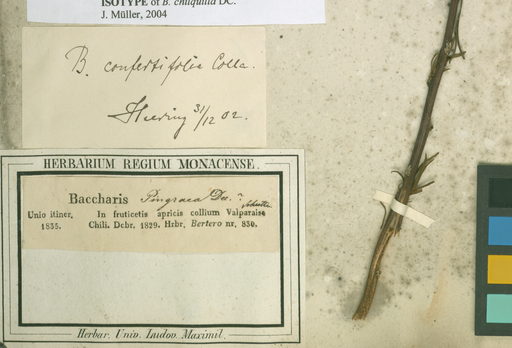 ISOTYPE of B. chilquilla DC.
J. Müller, 2004
B. confertifolia Colla.
Heering 31/12 02.
HERBARIUM REGIUM MONACENSE.
Baccharis Pingraea Dec.
Unio itiner. In fruticetis apricis collium Valparaiso
1835. Chili. Dcbr. 1829. Hrbr. Bertero nr. 830.
Herbar. Univ. Ludov. Maximil.